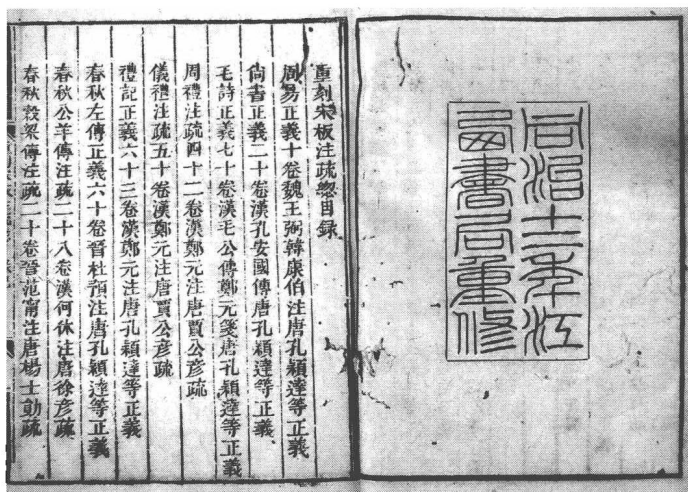 同治十二年江
西書局重修
重刻宋板注疏總目録
周易正義十卷魏王弼韓康伯注唐孔穎達等正義
尚書正義二十卷漢孔安國傳唐孔穎達等正義
毛詩正義七十卷漢毛公傳鄭元箋唐孔穎達等正義
周禮注疏四十二卷漢鄭元注唐賈公彥疏
儀禮注疏五十卷漢鄭元注唐賈公彥疏
禮記正義六十三卷漢鄭元注唐孔穎達等正義
春秋左傳正義六十卷晉杜預注唐孔穎達等正義
春秋公羊傳注疏二十八卷漢何休注唐徐彥疏
春秋穀梁傳注疏二十卷晉范甯注唐楊士勛疏